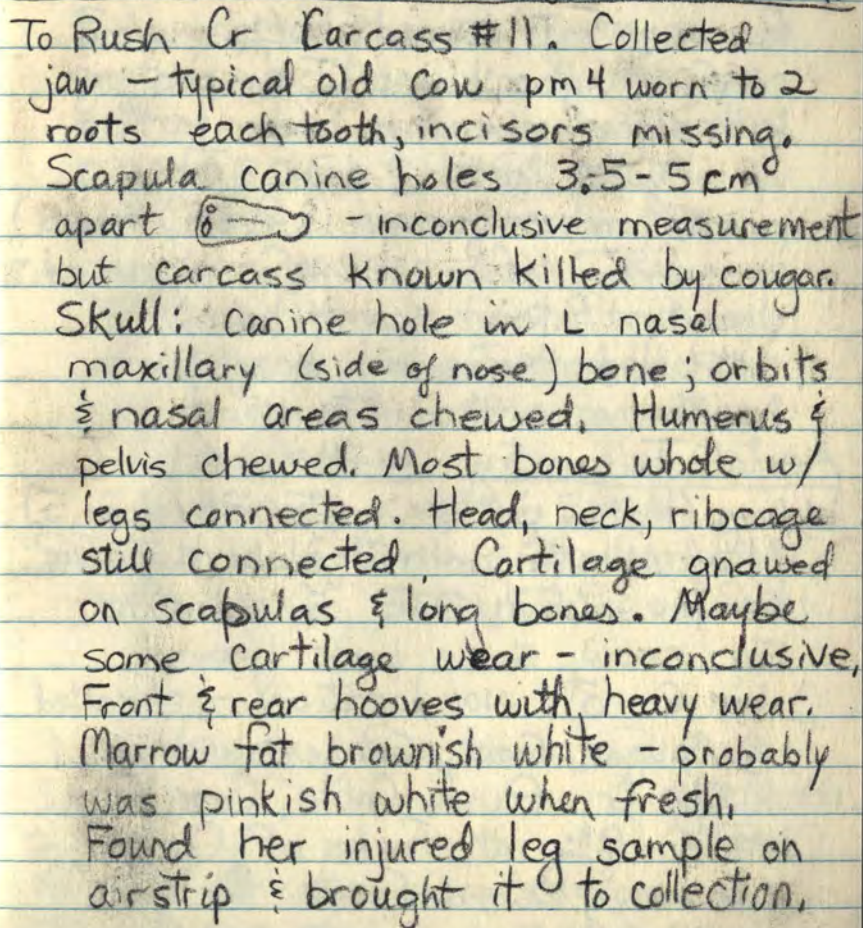 To Rush Cr Carcass #11. Collected
jaw – typical old cow pm4 worn to 2
roots each tooth, incisors missing.
Scapula canine holes 3.5-5 cm
apart - inconclusive measurement
but carcass known killed by cougar.
Skull: canine hole in L nasal
maxillary (side of nose) bone; orbits
& nasal areas chewed. Humerus &
pelvis chewed. Most bones whole w/
legs connected. Head, neck, ribcage
still connected. Cartilage gnawed
on scapulas & long bones. Maybe
some cartilage wear - inconclusive,
Front & rear hooves with heavy wear.
Marrow fat brownish white – probably
was pinkish white when fresh.
Found her injured leg sample on
airstrip & brought it to collection.